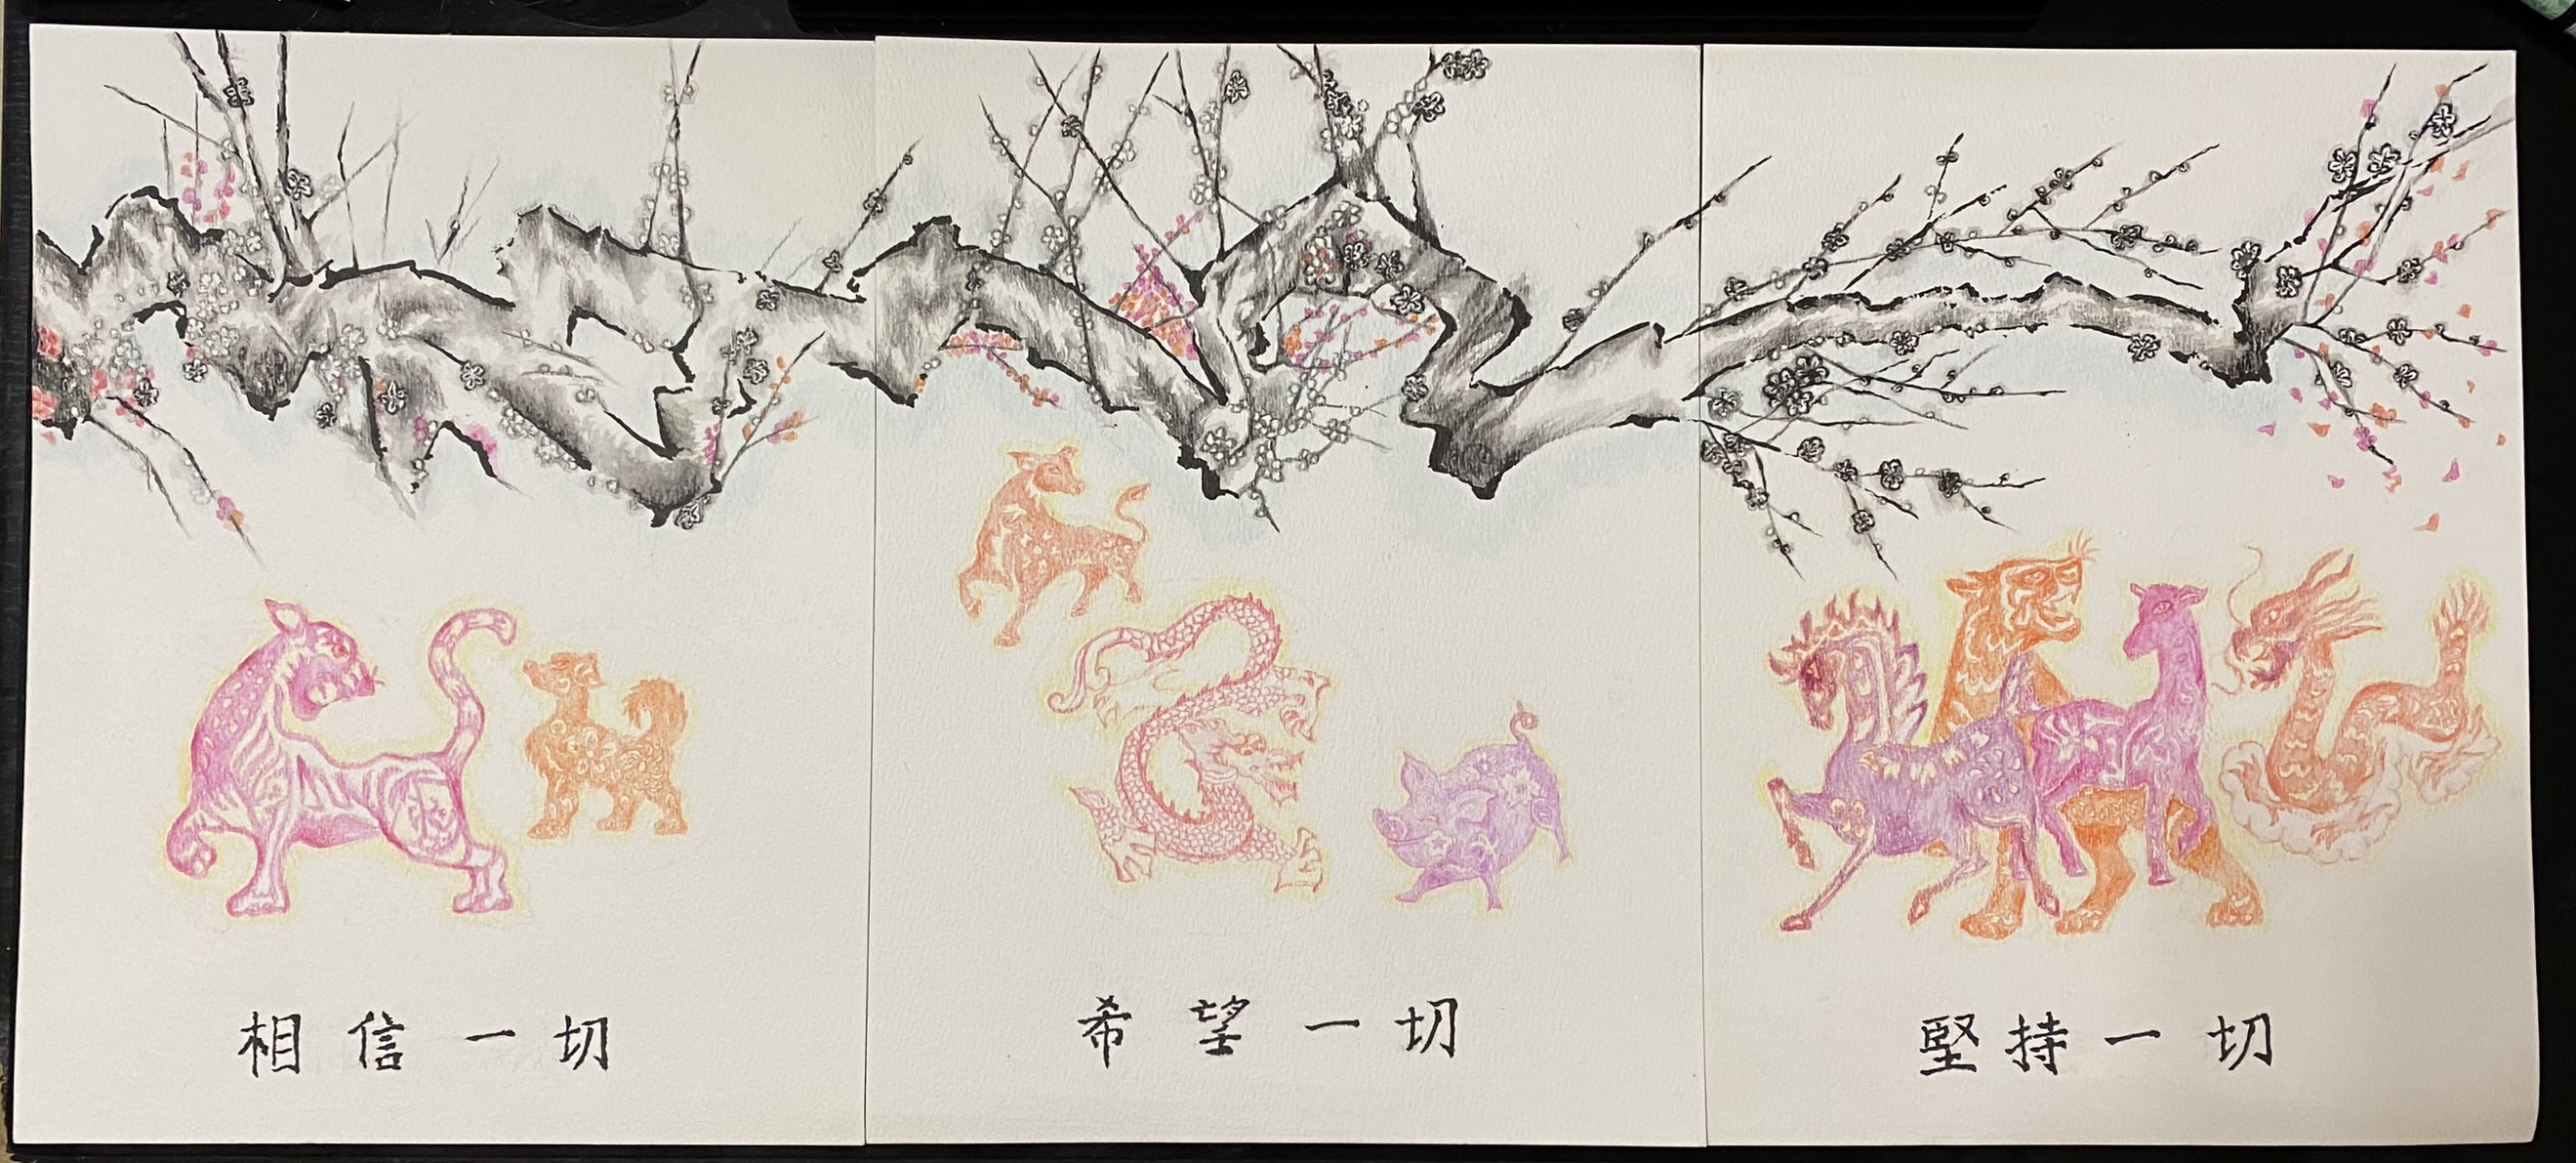 相信一切
希望一切
堅持一切